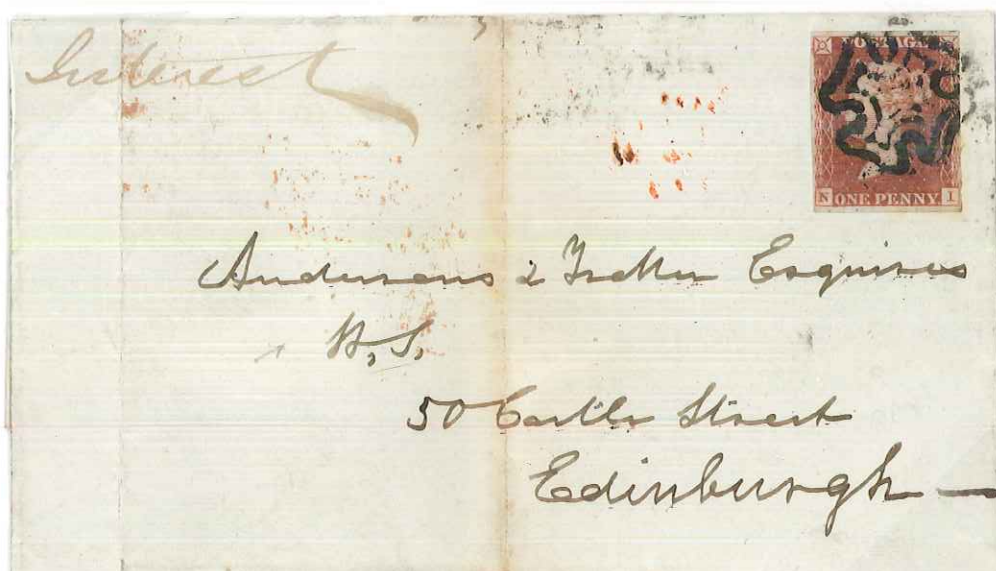 Interest
POSTAGE
N ONE PENNY I
Andersons & Trotter Esquires
W.S.
50 Castle Street
Edinburgh —